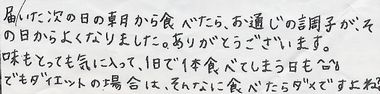 届いた次の日の朝から食べたら、お通じの調子が、そ
の日からよくなりました。ありがとうございます。
味もとっても気に入って、1日で1本食べてしまう日も^^;
でもダイエットの場合は、そんなに食べたらダメですよね